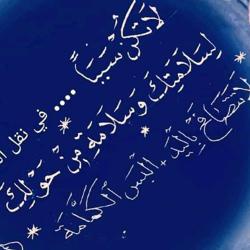 لَا تَكُنْ سَبَبًا .... في نقل
لِسَلَامَتِكَ وَسَلَامَةِ مَنْ حَوْلَكَ
لَا تُصَافِحْ بِالْيَدِ، الْبَسِ الْكَمَّامَةَ